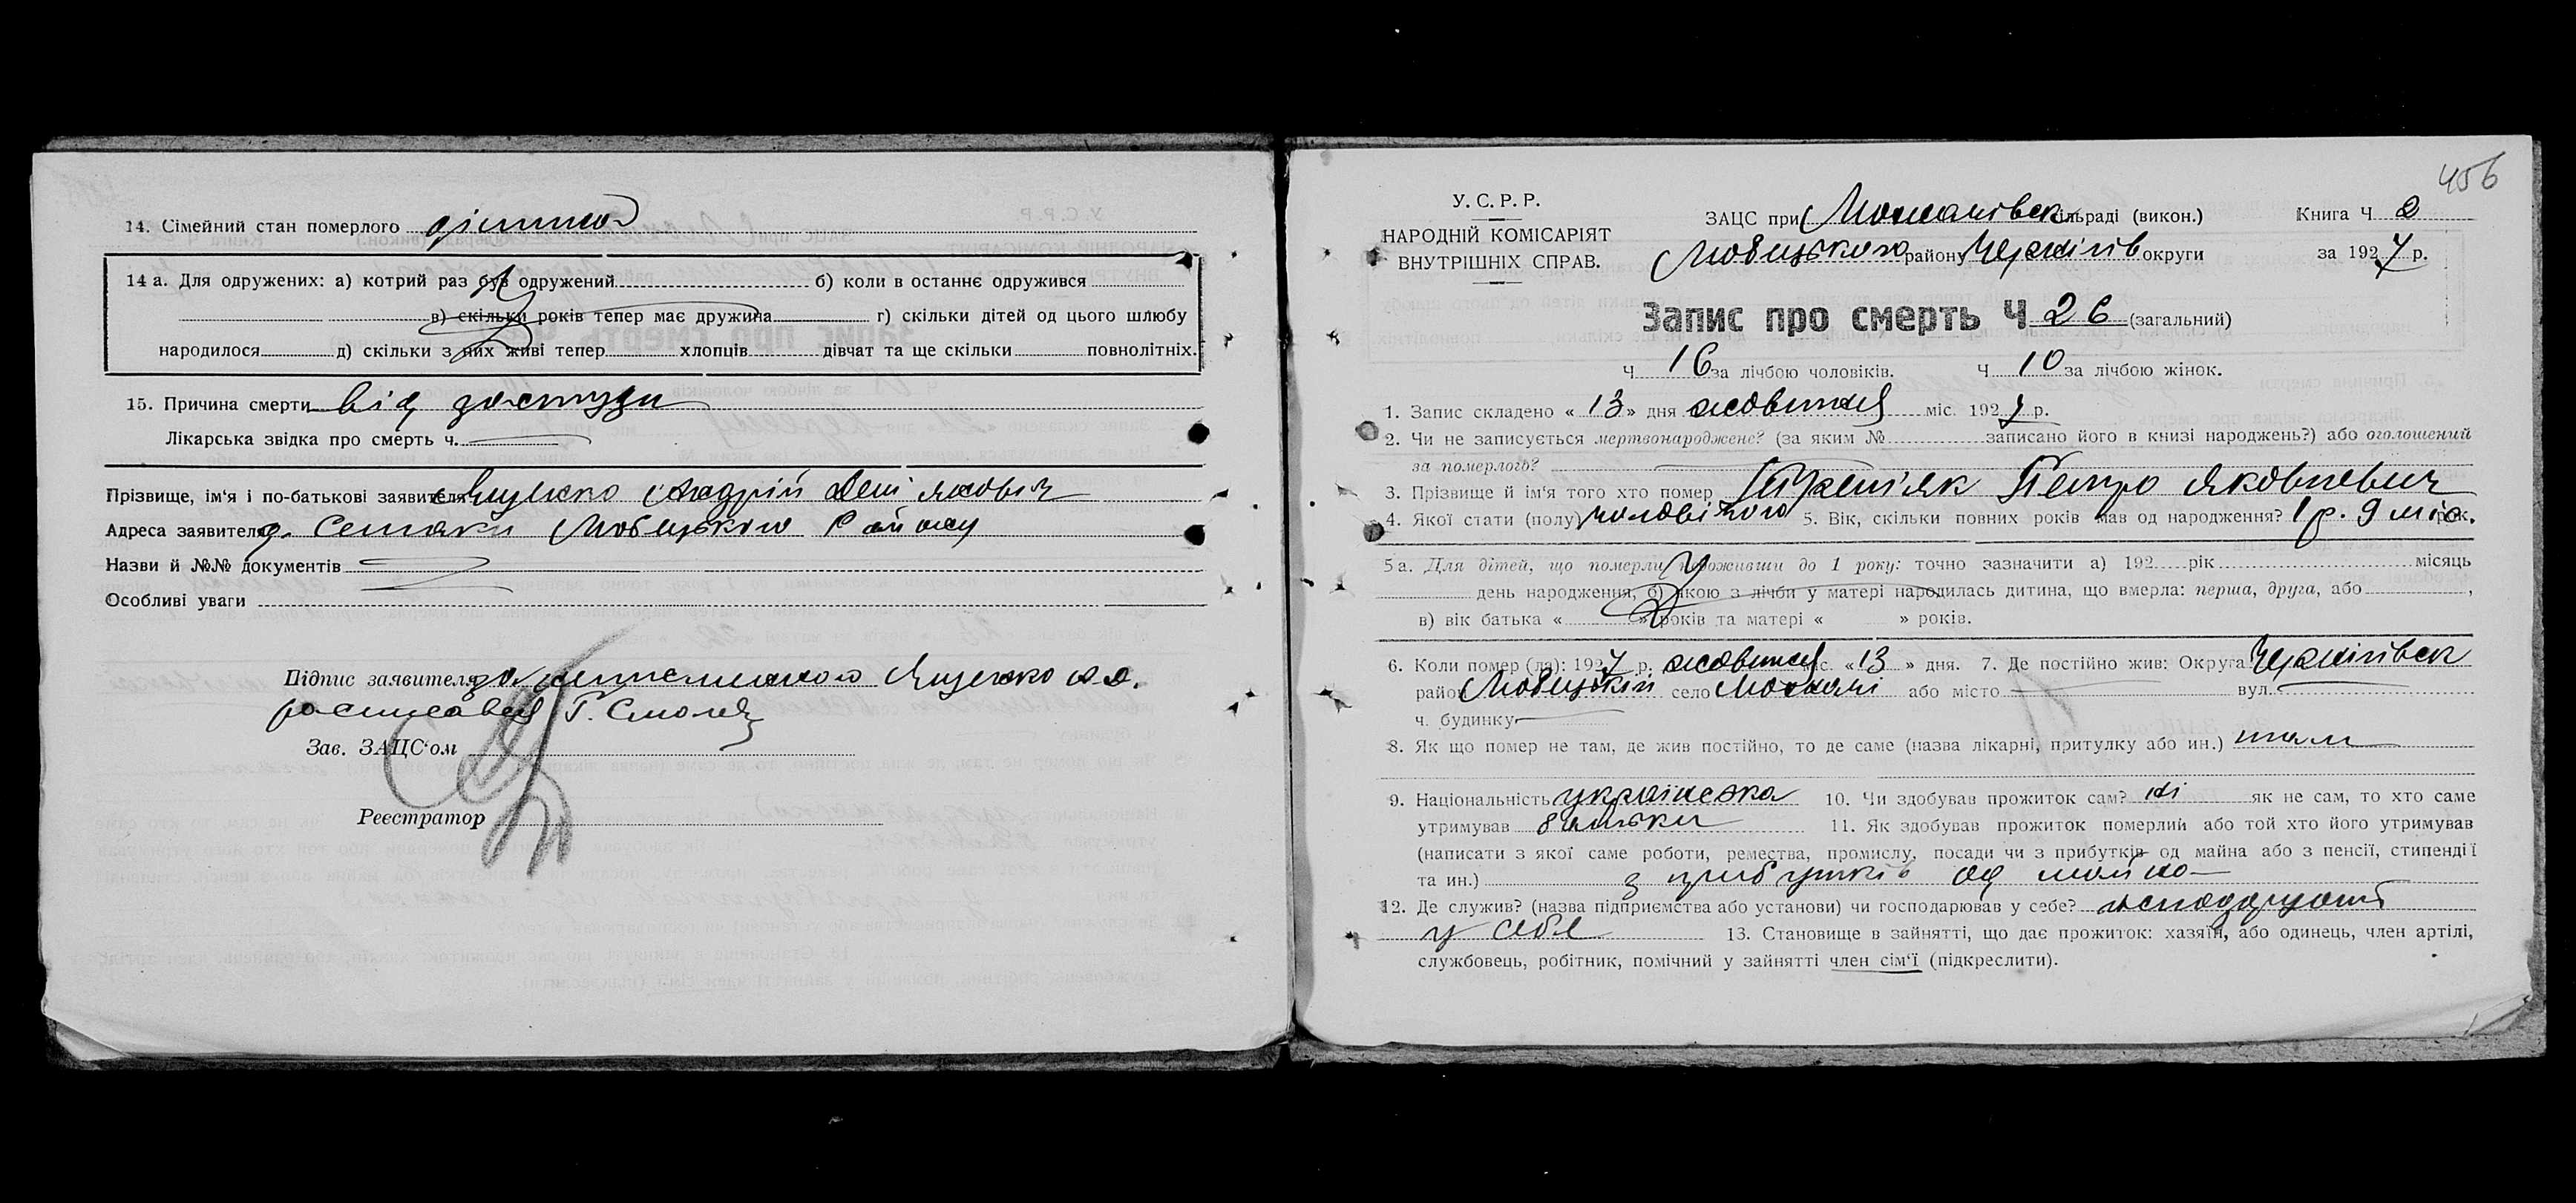 14. Сімейний стан померлого дитина
14 а. Для одружених: а) котрий раз був одружений б) коли в останнє одружився
в) скільки років тепер має дружина г) скільки дітей од цього шлюбу
народилося д) скільки з них живі тепер хлопців дівчат та ще скільки повнолітніх.
15. Причина смерти від застуди
Лікарська звідка про смерть ч.
Прізвище, ім'я і по-батькові заявителя Ященко Андрій
Адреса заявителя с. Любецького Району
Назви й №№ документів
Особливі уваги
Підпис заявителя за Ященко А. Д.
росписався Г. Смоляр
Зав. ЗАЦС'ом
Реєстратор
456
У. С. Р. Р.
НАРОДНІЙ КОМІСАРІЯТ
ВНУТРІШНІХ СПРАВ.
ЗАЦС при сільраді (викон.) Книга Ч 2
Любецького району Чернігів округи за 1927 р.
Запис про смерть Ч 26 (загальний)
Ч 16 за лічбою чоловіків. Ч 10 за лічбою жінок.
1. Запис складено « 13 » дня жовтня міс. 1927 р.
2. Чи не записується мертвонароджене? (за яким № записано його в книзі народжень?) або оголошений
за померлого?
3. Прізвище й ім'я того хто помер Петро Яковлевич
4. Якої стати (полу) чоловічого 5. Вік, скільки повних років мав од народження? 1 р. 9 міс. рок.
5 а. Для дітей, що померли не доживши до 1 року: точно зазначити а) 192 рік місяць
день народження, б) якою з лічби у матері народилась дитина, що вмерла: перша, друга, або ,
в) вік батька « » років та матері « » років.
6. Коли помер (ла): 1927 р. жовтня міс. «13 » дня. 7. Де постійно жив: Округа Чернігівськ
район Любецький село або місто вул.
ч. будинку
8. Як що помер не там, де жив постійно, то де саме (назва лікарні, притулку або ин.) там
9. Національність українська 10. Чи здобував прожиток сам? ні як не сам, то хто саме
утримував батьки 11. Як здобував прожиток померлий або той хто його утримував
(написати з якої саме роботи, ремества, промислу, посади чи з прибутків од майна або з пенсії, стипендії
та ин.) з прибутків од майна
12. Де служив? (назва підприємства або установи) чи господарював у себе? господарують
у себе 13. Становище в зайнятті, що дає прожиток: хазяїн, або одинець, член артілі,
службовець, робітник, помічний у зайнятті член сім'ї (підкреслити).